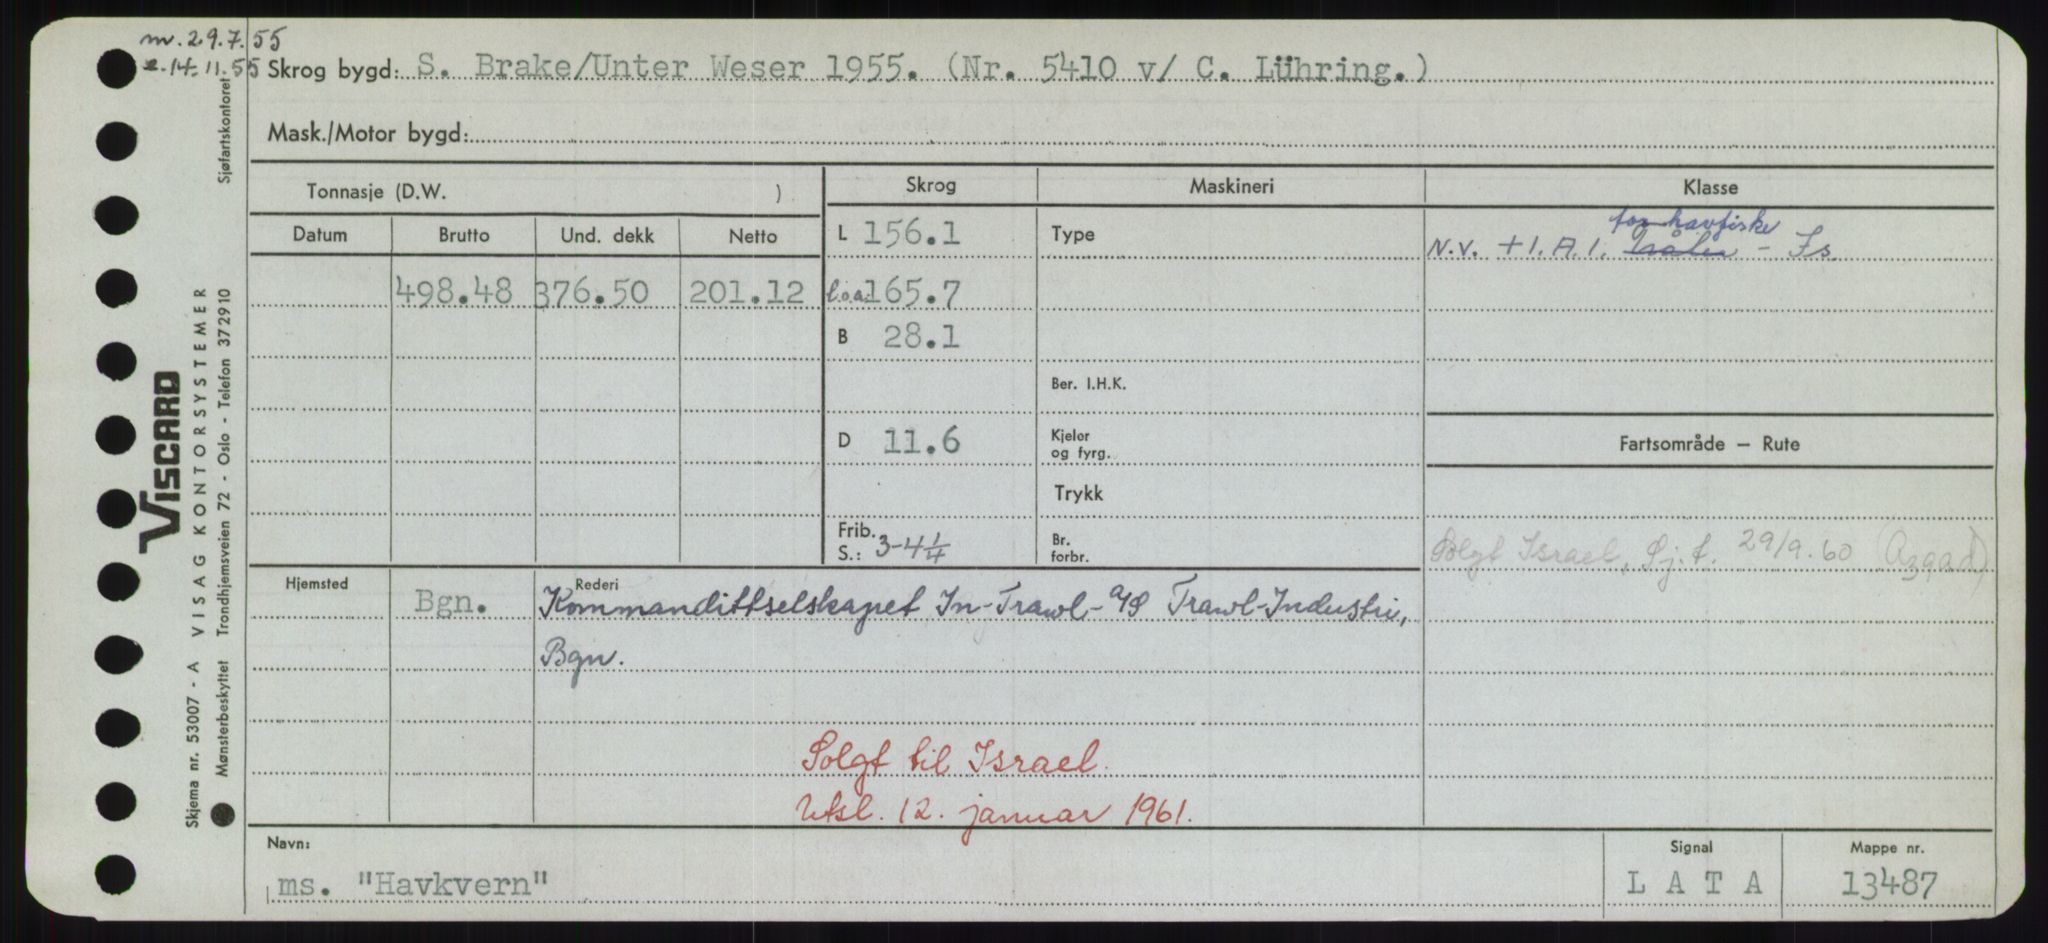 m. 29.7.55
e. 14.11.55
Skrog bygd: S. Brake/Unter Weser 1955. (Nr. 5410 v/ C. Lühring.)
Mask./Motor bygd:
Tonnasje (D.W. )
Skrog
Maskineri
Klasse
Datum
Brutto
Und. dekk
Netto
L 156.1
Type
for havfiske
N.V. +1.A.1. – Is
498.48
376.50
201.12
l.o.a: 165.7
B 28.1
Ber. I.H.K.
D 11.6
Kjeler og fyrg.
Fartsområde – Rute
Trykk
Frib. S.: 3-4 1/4
Br. forbr.
Solgt Israel, Sj.t. 29/9.60 (Azgad)
Hjemsted
Bgn.
Rederi
Kommandittselskapet In-Trawl- A/S Trawl-Industri,
Bgn.
Solgt til Israel.
Utsl. 12. januar 1961.
Navn:
ms. "Havkvern"
Signal
L A T A
Mappe nr.
13487
VISCARD
Skjema nr. 53007 - A VISAG KONTORSYSTEMER
Mønsterbeskyttet Trondhjemsveien 72 - Oslo - Telefon 372910 Sjøfartskontoret